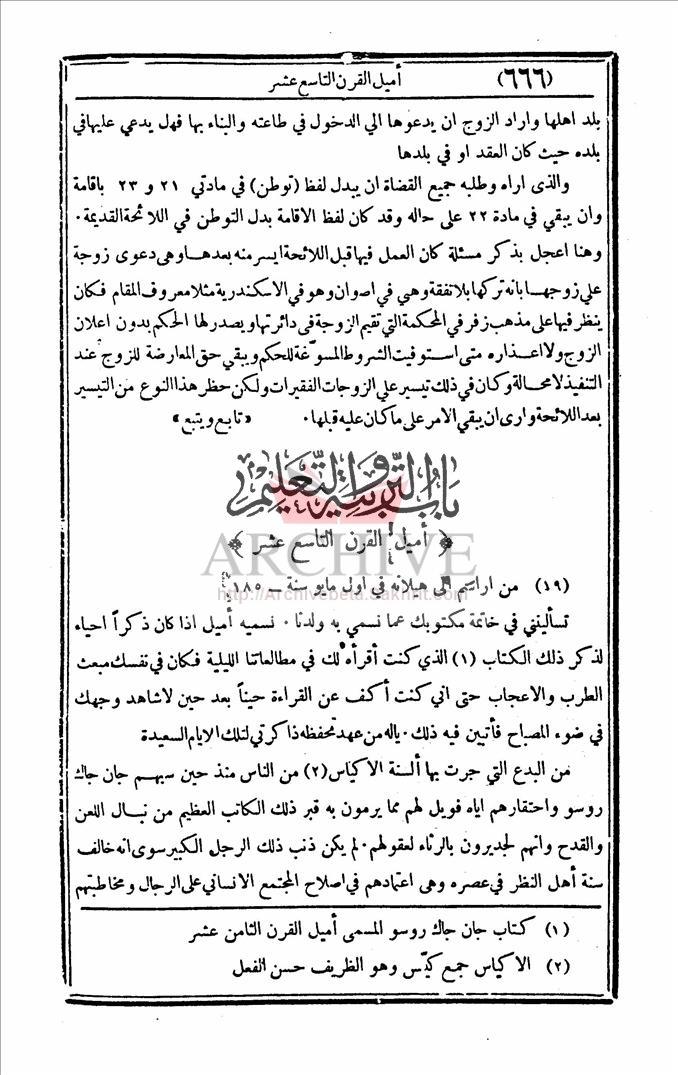 (٦٦٦) أميل القرن التاسع عشر
بلد اهلها واراد الزوج ان يدعوها الي الدخول في طاعته والبناء بها فهل يدعي عليها في
بلده حيث كان العقد او في بلدها
والذى اراه وطلبه جميع القضاة ان يبدل لفظ (توطن) في مادتي ٢١ و ٢٣ باقامة
وان يبقي في مادة ٢٢ على حاله وقد كان لفظ الاقامة بدل التوطن في اللائحة القديمة ٠
وهنا اعجل بذكر مسئلة كان العمل فيها قبل اللائحة ايسر منه بعدها وهى دعوى زوجة
علي زوجها بانه تركها بلا نفقة وهي في اصوان وهو في الاسكندرية مثلا معروف المقام فكان
ينظر فيها على مذهب زفر في المحكمة التي تقيم الزوجة فى دائرتها ويصدر لها الحكم بدون اعلان
الزوج ولا اعذاره متى استوفيت الشروط المسوّغة للحكم ويبقي حق المعارضة للزوج عند
التنفيذ لا محالة وكان في ذلك تيسير علي الزوجات الفقيرات ولكن حظر هذا النوع من التيسير
بعد اللائحة وارى ان يبقي الامر على ما كان عليه قبلها ٠ «تابع ويتبع»
باب التربية والتعليم
﴿ أميل القرن التاسع عشر ﴾
ARCHIVE
http://Archivebeta.Sakhrit.com
(١٩) من اراسم الى هيلانه في اول مايو سنة – ١٨٥
تسألينني في خاتمة مكتوبك عما نسمي به ولدنا ٠ نسميه أميل اذا كان ذكراً احياء
لذكر ذلك الكتاب (١) الذي كنت أقرأه لك في مطالعاتنا الليلية فكان في نفسك مبعث
الطرب والاعجاب حتى اني كنت أكف عن القراءة حيناً بعد حين لاشاهد وجهك
في ضوء المصباح فأتبين فيه ذلك ٠ ياله من عهد تحفظه ذاكرتي لتلك الايام السعيدة
من البدع التي جرت بها ألسنة الاكياس (٢) من الناس منذ حين سبهم جان جاك
روسو واحتقارهم اياه فويل لهم مما يرمون به قبر ذلك الكاتب العظيم من نبال اللعن
والقدح وانهم لجديرون بالرثاء لعقولهم ٠ لم يكن ذنب ذلك الرجل الكبير سوى انه خالف
سنة أهل النظر في عصره وهى اعتمادهم في اصلاح المجتمع الانساني على الرجال ومخاطبتهم
(١) كتاب جان جاك روسو المسمى أميل القرن الثامن عشر
(٢) الاكياس جمع كيّس وهو الظريف حسن الفعل